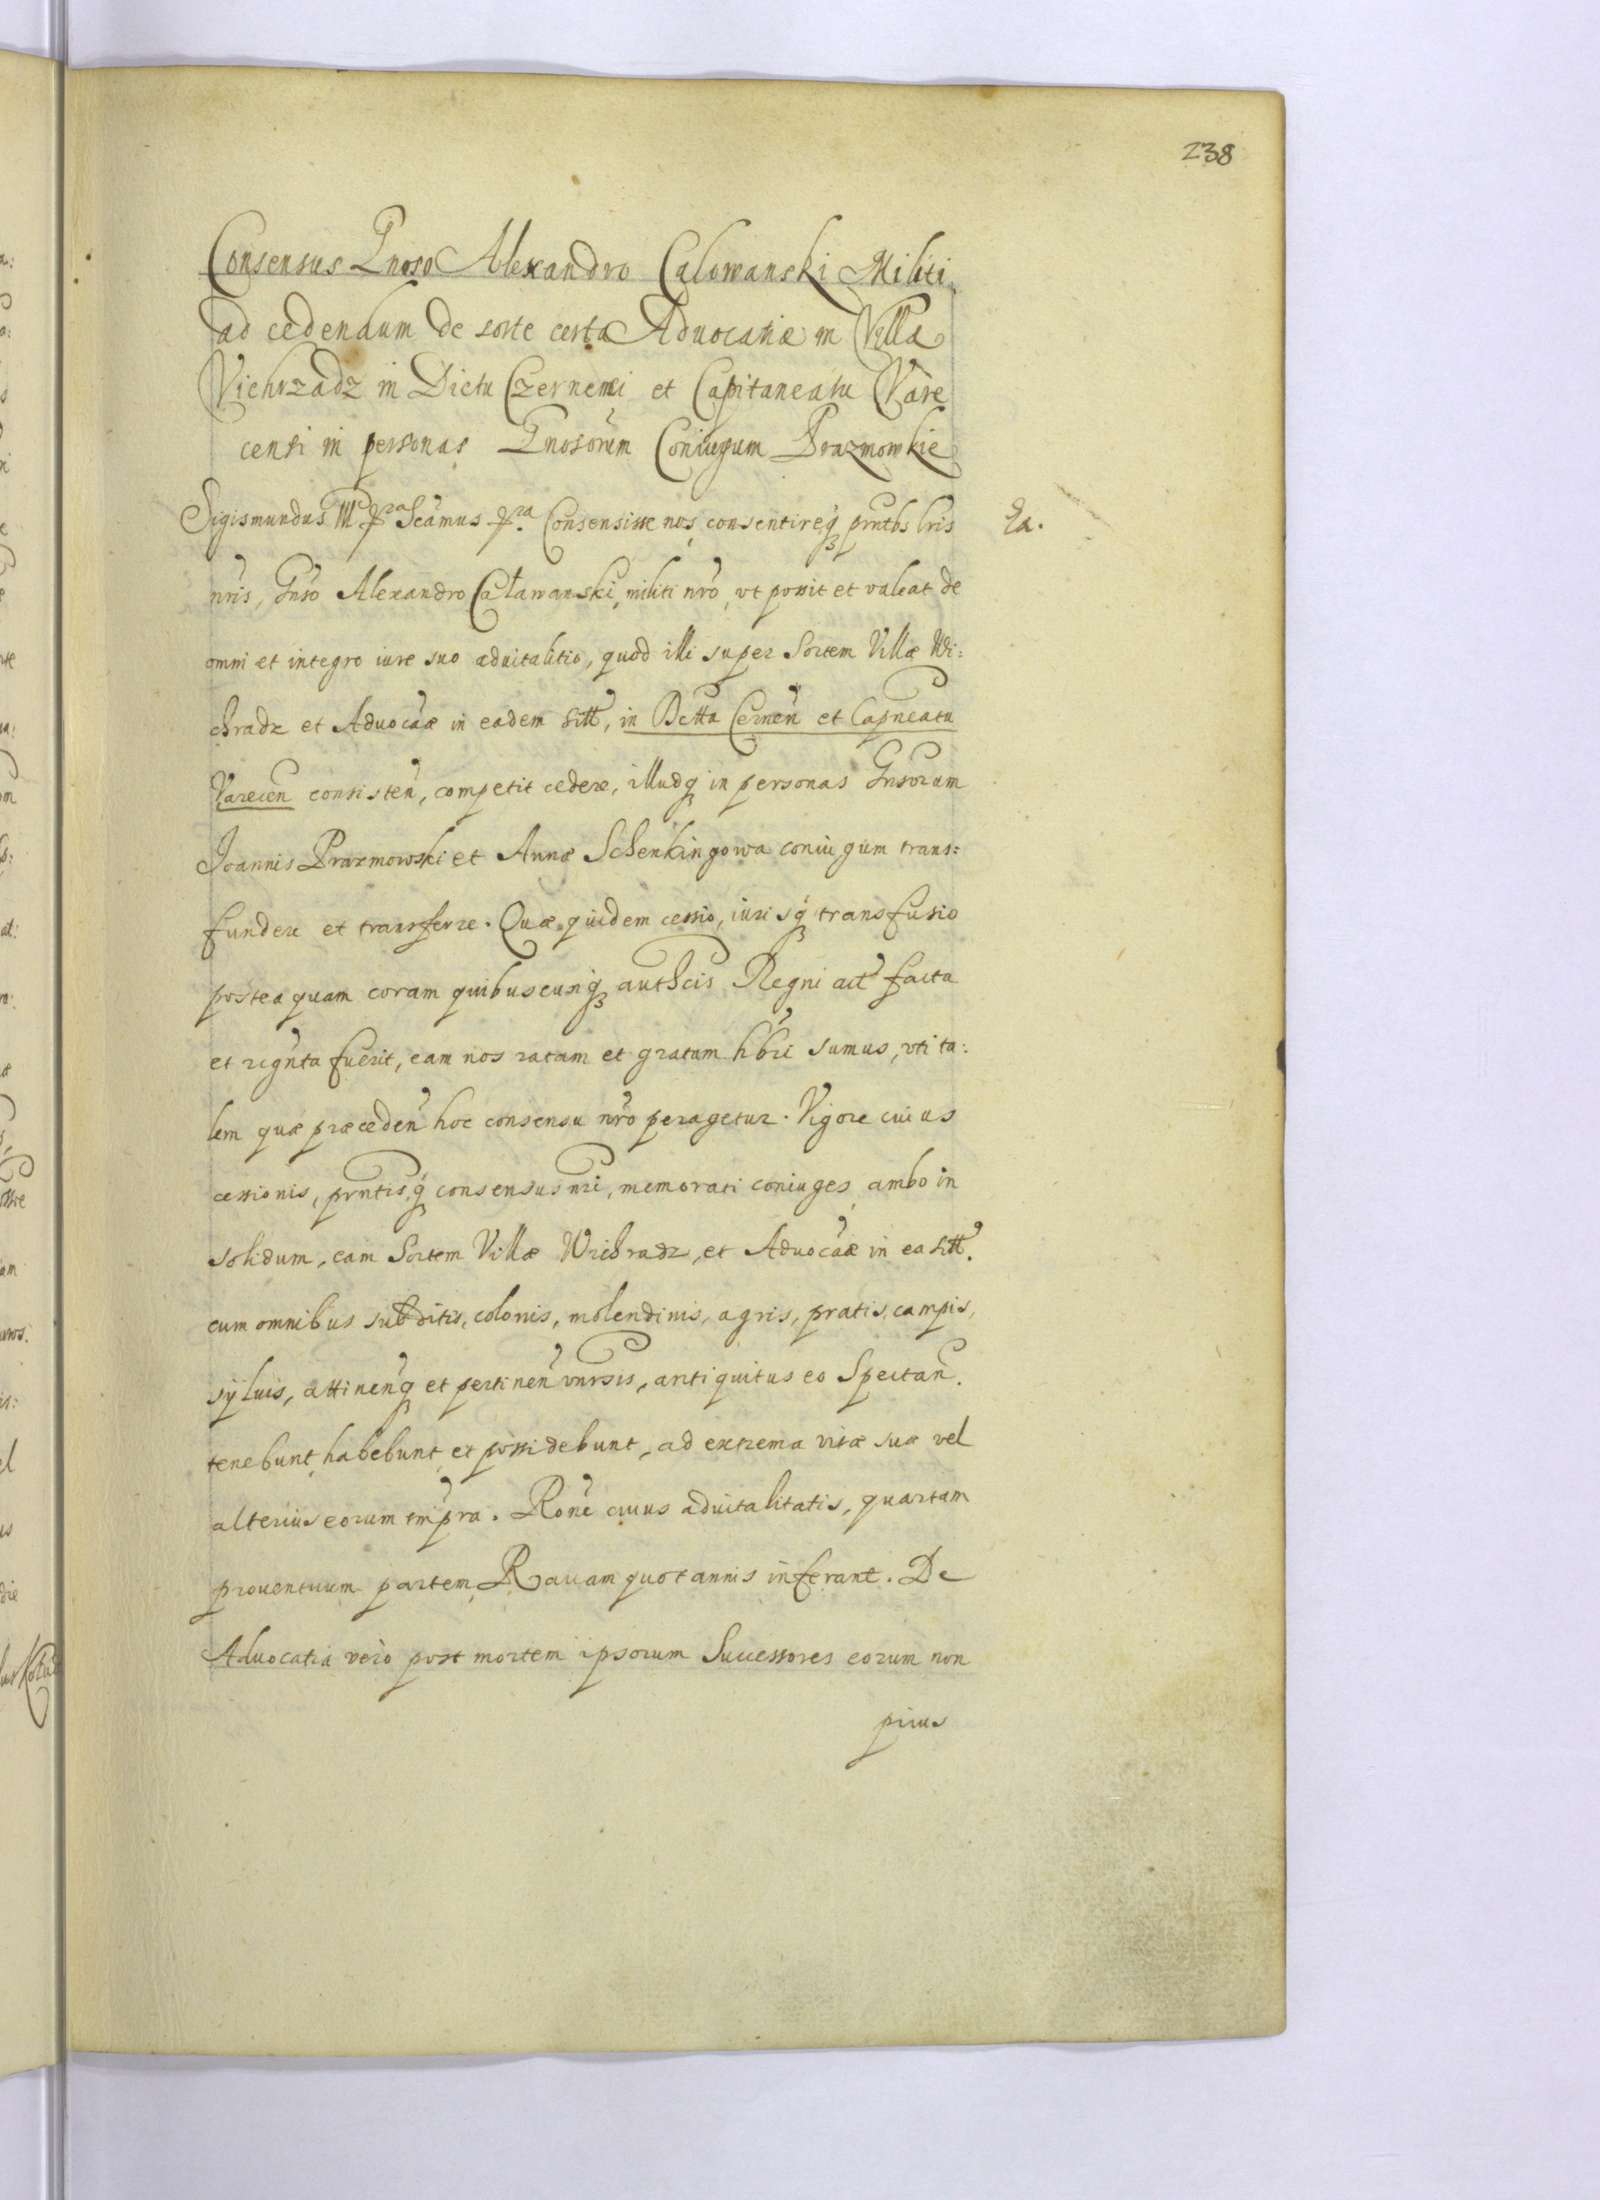 238
Consensus Gnoso Alexandro Calowanski Militi
ad cedendum de sorte certa Advocatiæ in Villa
Vichrzadz in Dictu Czernemi et Capitaneatu Vare
censi in personas Gnosorum Coniugum Prazmowkie
Sigismundus III Dei gra Scamus Consensisse nos, consentireq prntbs lris
nris, Gnso Alexandro Caławanski, militi nro, vt possit et valeat de
omni et integro iure suo aduitalitio, quod illi super Sortem Villæ Wi:
chradz et Aduocaæ in eadem sitt, in Dctta Cernen et Capneatu
Varecen consisten, competit cedere, illudq in personas Gnsorum
Joannis Prazmowski et Annæ Schenkingowa coniugum trans:
fundere et transferre. Quæ quidem cessio, iurisq transfusio
posteaquam coram quibuscunq authcis Regni act facta
et rcgnta fuerit, eam nos ratam et gratam hbri sumus, vti ta:
lem quæ præceden hoc consensu nro peragetur. Vigore cuius
cessionis, prntisq consensus nri, memorati coniuges, ambo in
solidum, eam Sortem Villæ Wichradz, et Aduocaæ in ea sitt.
cum omnibus subditis, colonis, molendinis, agris, pratis, campis,
syluis, attinenq et pertinen vnrsis, antiquitus eo Spectan.
tenebunt, habebunt, et possidebunt, ad extrema vitæ suæ vel
alterius eorum tmpra. Rone cuius aduitalitatis, quartam
prouentuum partem, Rauam quotannis inferant. De
Aduocatia verò post mortem ipsorum Successores eorum non
prius